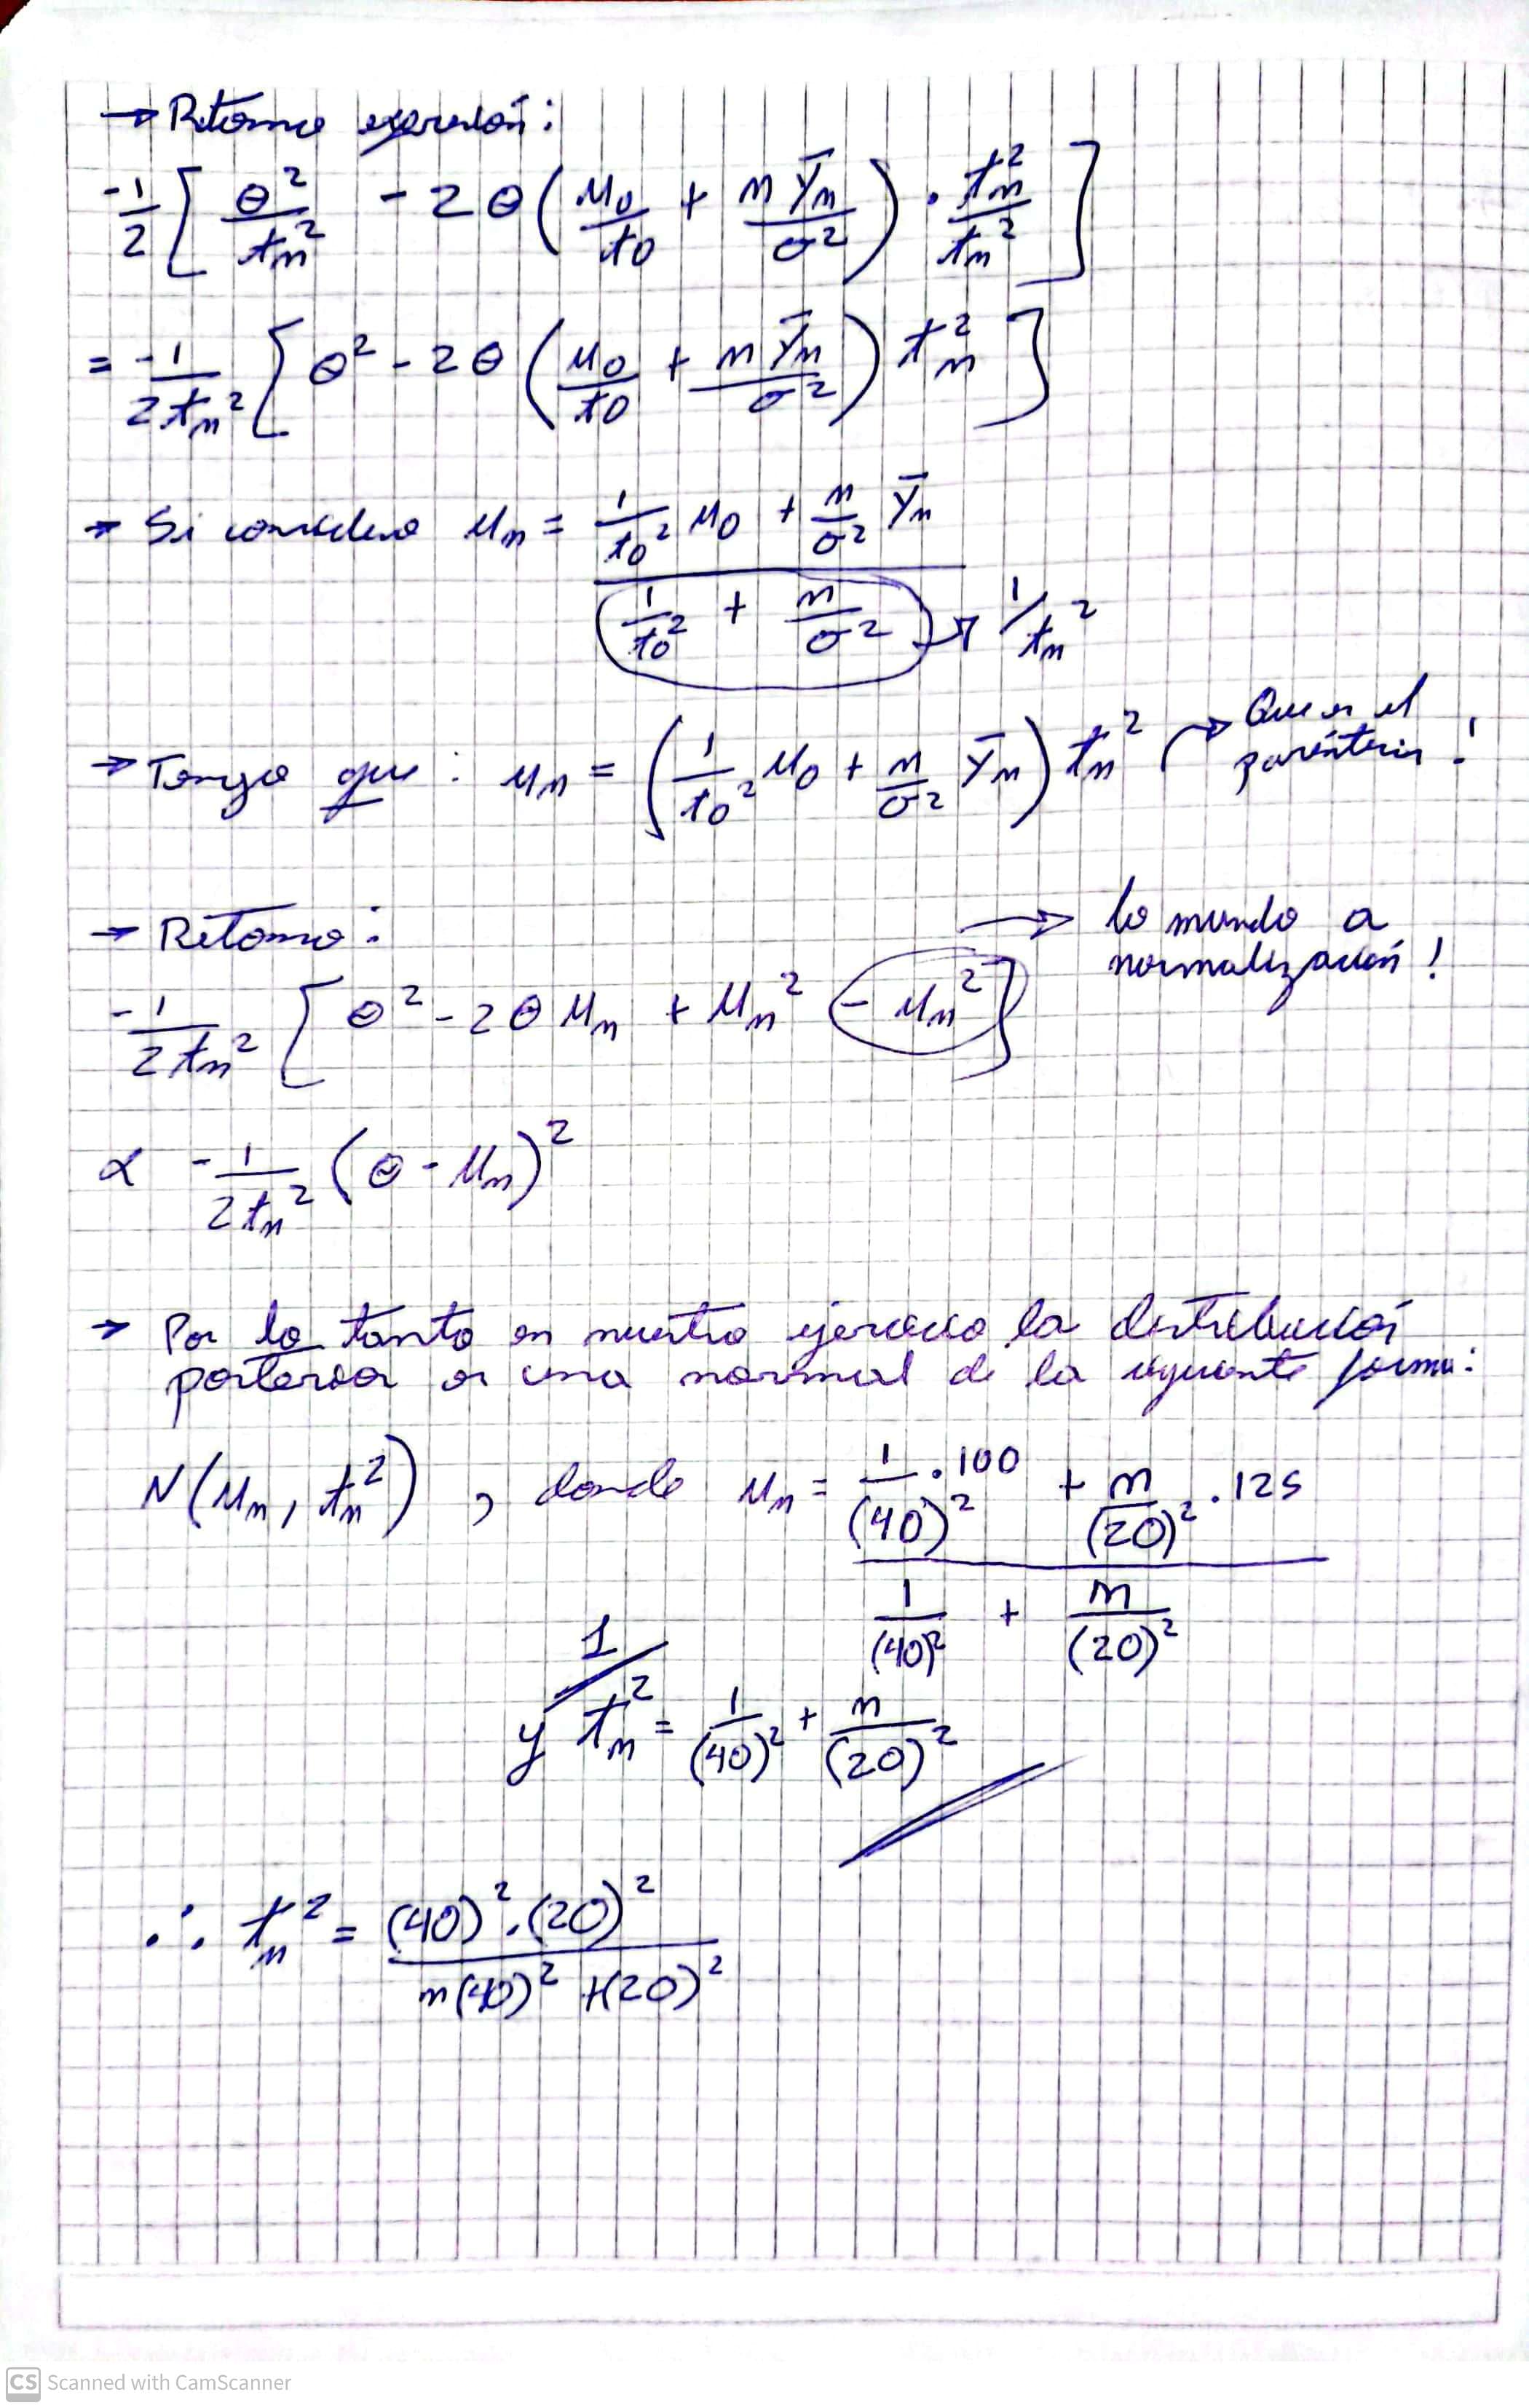 → Retomo expresión:
-1/2 [ θ²/tn² - 2θ ( μ0/t0 + n Ȳn/σ² ) · tn²/tn² ]
= -1/2tn² [ θ² - 2θ ( μ0/t0 + n Ȳn/σ² ) tn² ]
→ Si considero μn = (1/t0² μ0 + n/σ² Ȳn) / (1/t0² + n/σ²) → 1/tn²
→ Tengo que: μn = ( 1/t0² μ0 + n/σ² Ȳn ) tn² → Que es el
paréntesis!
→ Retomo: → lo mando a
normalización!
-1/2tn² [ θ² - 2θ μn + μn² - μn² ]
∝ -1/2tn² (θ - μn)²
→ Por lo tanto en nuestro ejercicio la distribución
posterior es una normal de la siguiente forma:
N(μn, tn²), donde μn = (1/(40)² · 100 + n/(20)² · 125) / (1/(40)² + n/(20)²)
y 1/tn² = 1/(40)² + n/(20)²
∴ tn² = (40)² · (20)² / n(40)² + (20)²
CS Scanned with CamScanner